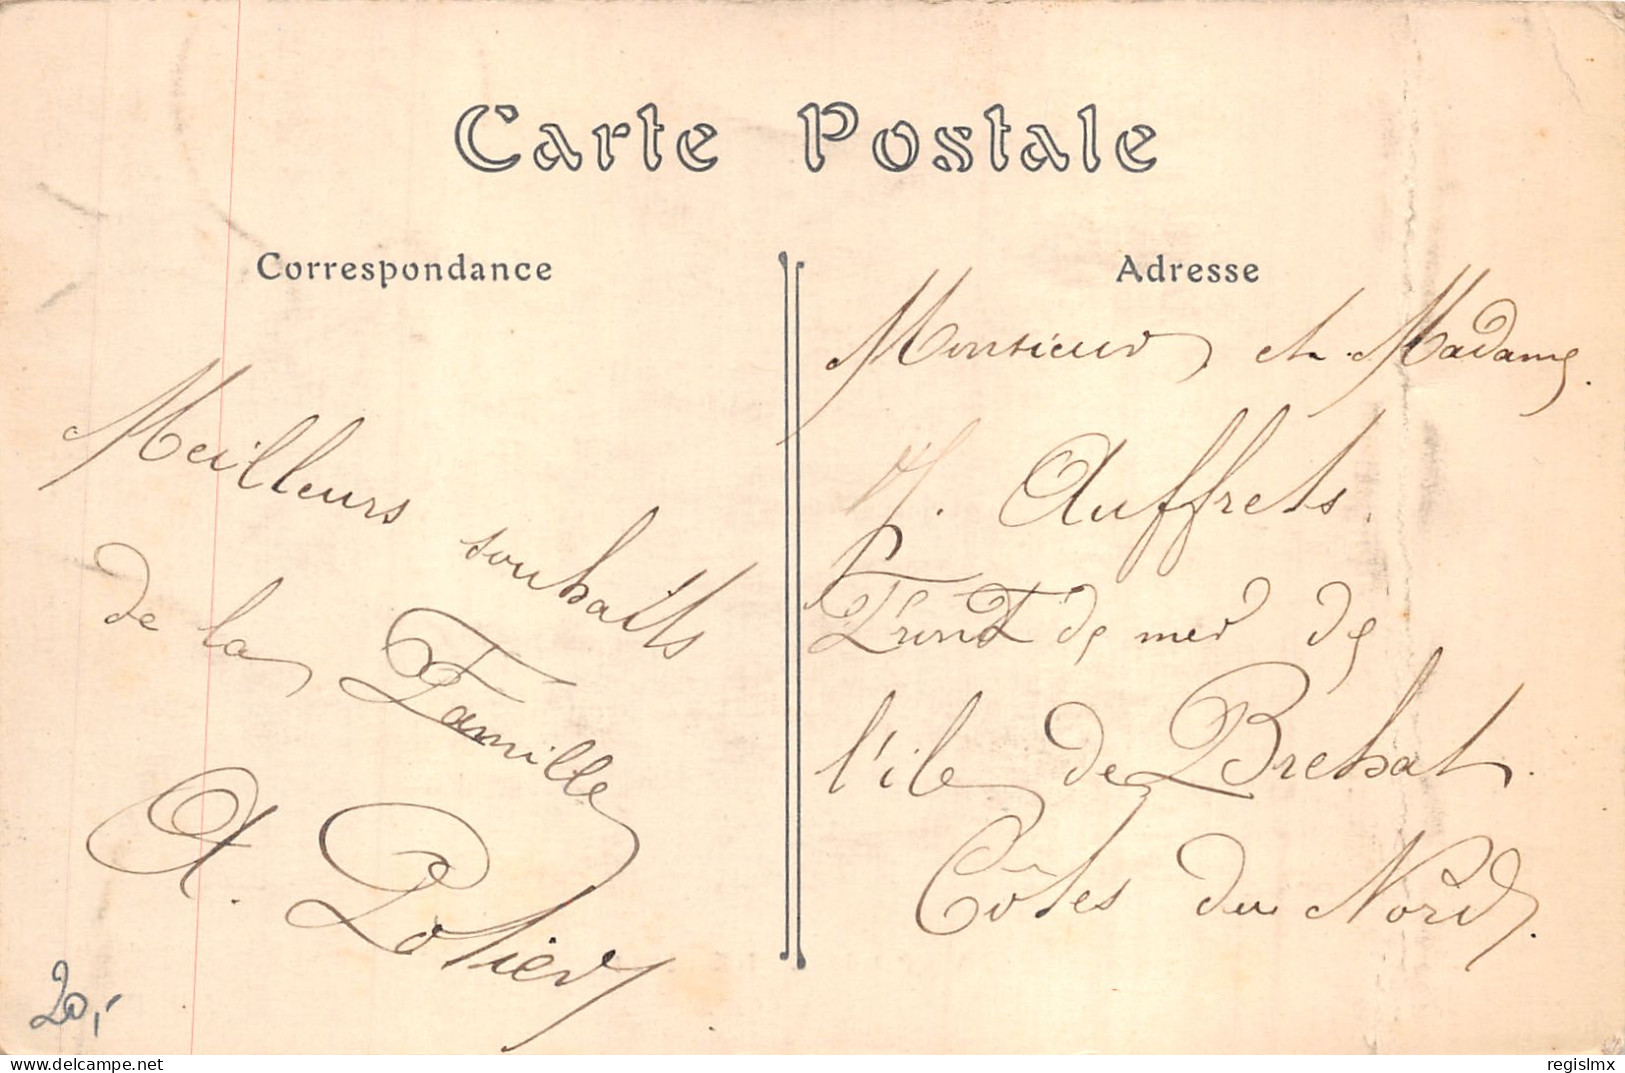 Carte Postale
Correspondance
Meilleurs souhaits
de la Famille
A. Potier
20,-
Adresse
Monsieur et Madame
Y. Auffrets.
de mer de
l'ile de Brehat.
Côtes du Nord.
delcampe.net
regislmx